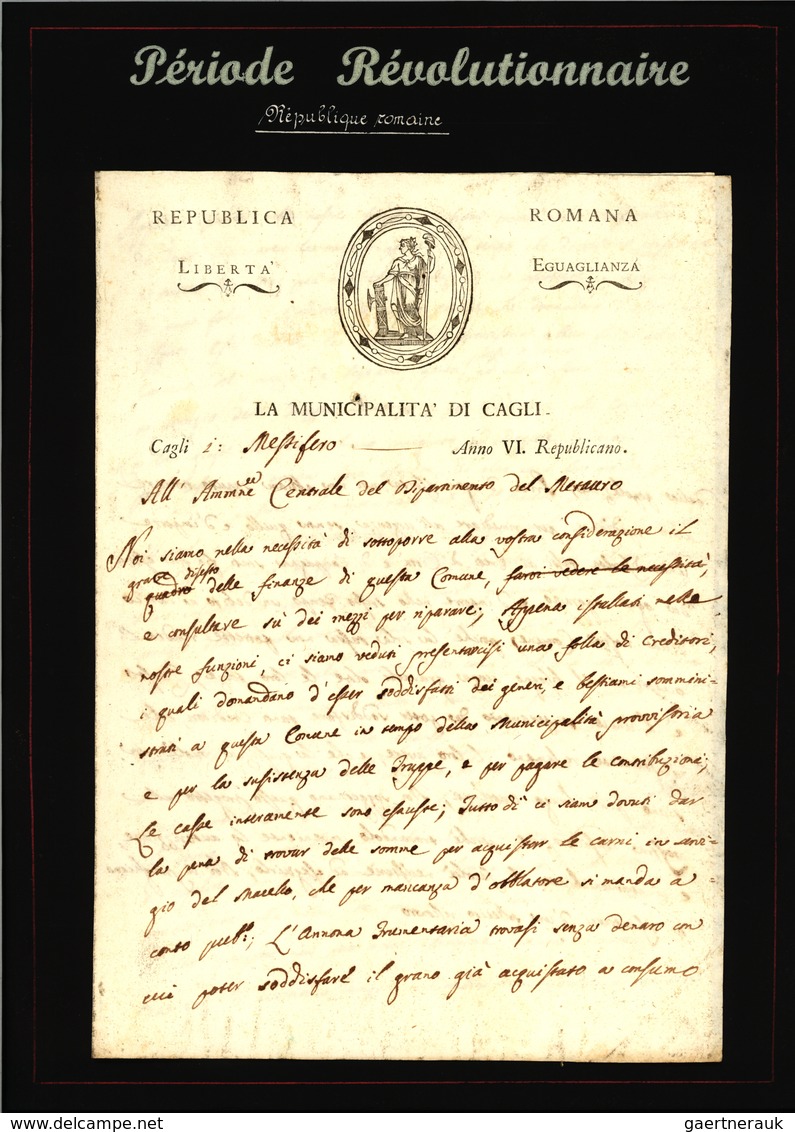 Période Révolutionnaire
République romaine
REPUBLICA ROMANA
LIBERTA' EGUAGLIANZA
LA MUNICIPALITA' DI CAGLI.
Cagli 1: Messifero Anno VI. Republicano.
All' Ammne Centrale del Dipartimento del Metauro
Noi siamo nella necessità di sottoporre alla vostra considerazione il
grave disesto
quadro delle finanze di questa Comune, farvi vedere la necessità,
e consultare sù dei mezzi per riparare; Appena istallati nelle
nostre funzioni, ci siamo veduti presentarcisi una folla di Creditori,
i quali domandano d'esser soddisfatti dei generi, e bestiami sommini-
strati a questa Comune in tempo della Municipalità provvisoria
e per la susistenza delle Truppe, e per pagare le contribuzioni;
Le casse interamente sono esauste; Tutto dì ci siamo dovuti dar
la pena di trovar delle somme per acquistar le carni in servi-
gio del Macello, che per mancanza d'obblatore si manda a
conto pub:; L'Annona Frumentaria trovasi senza denaro con
cui poter soddisfare il grano già acquistato a consumo
gaertnerauk